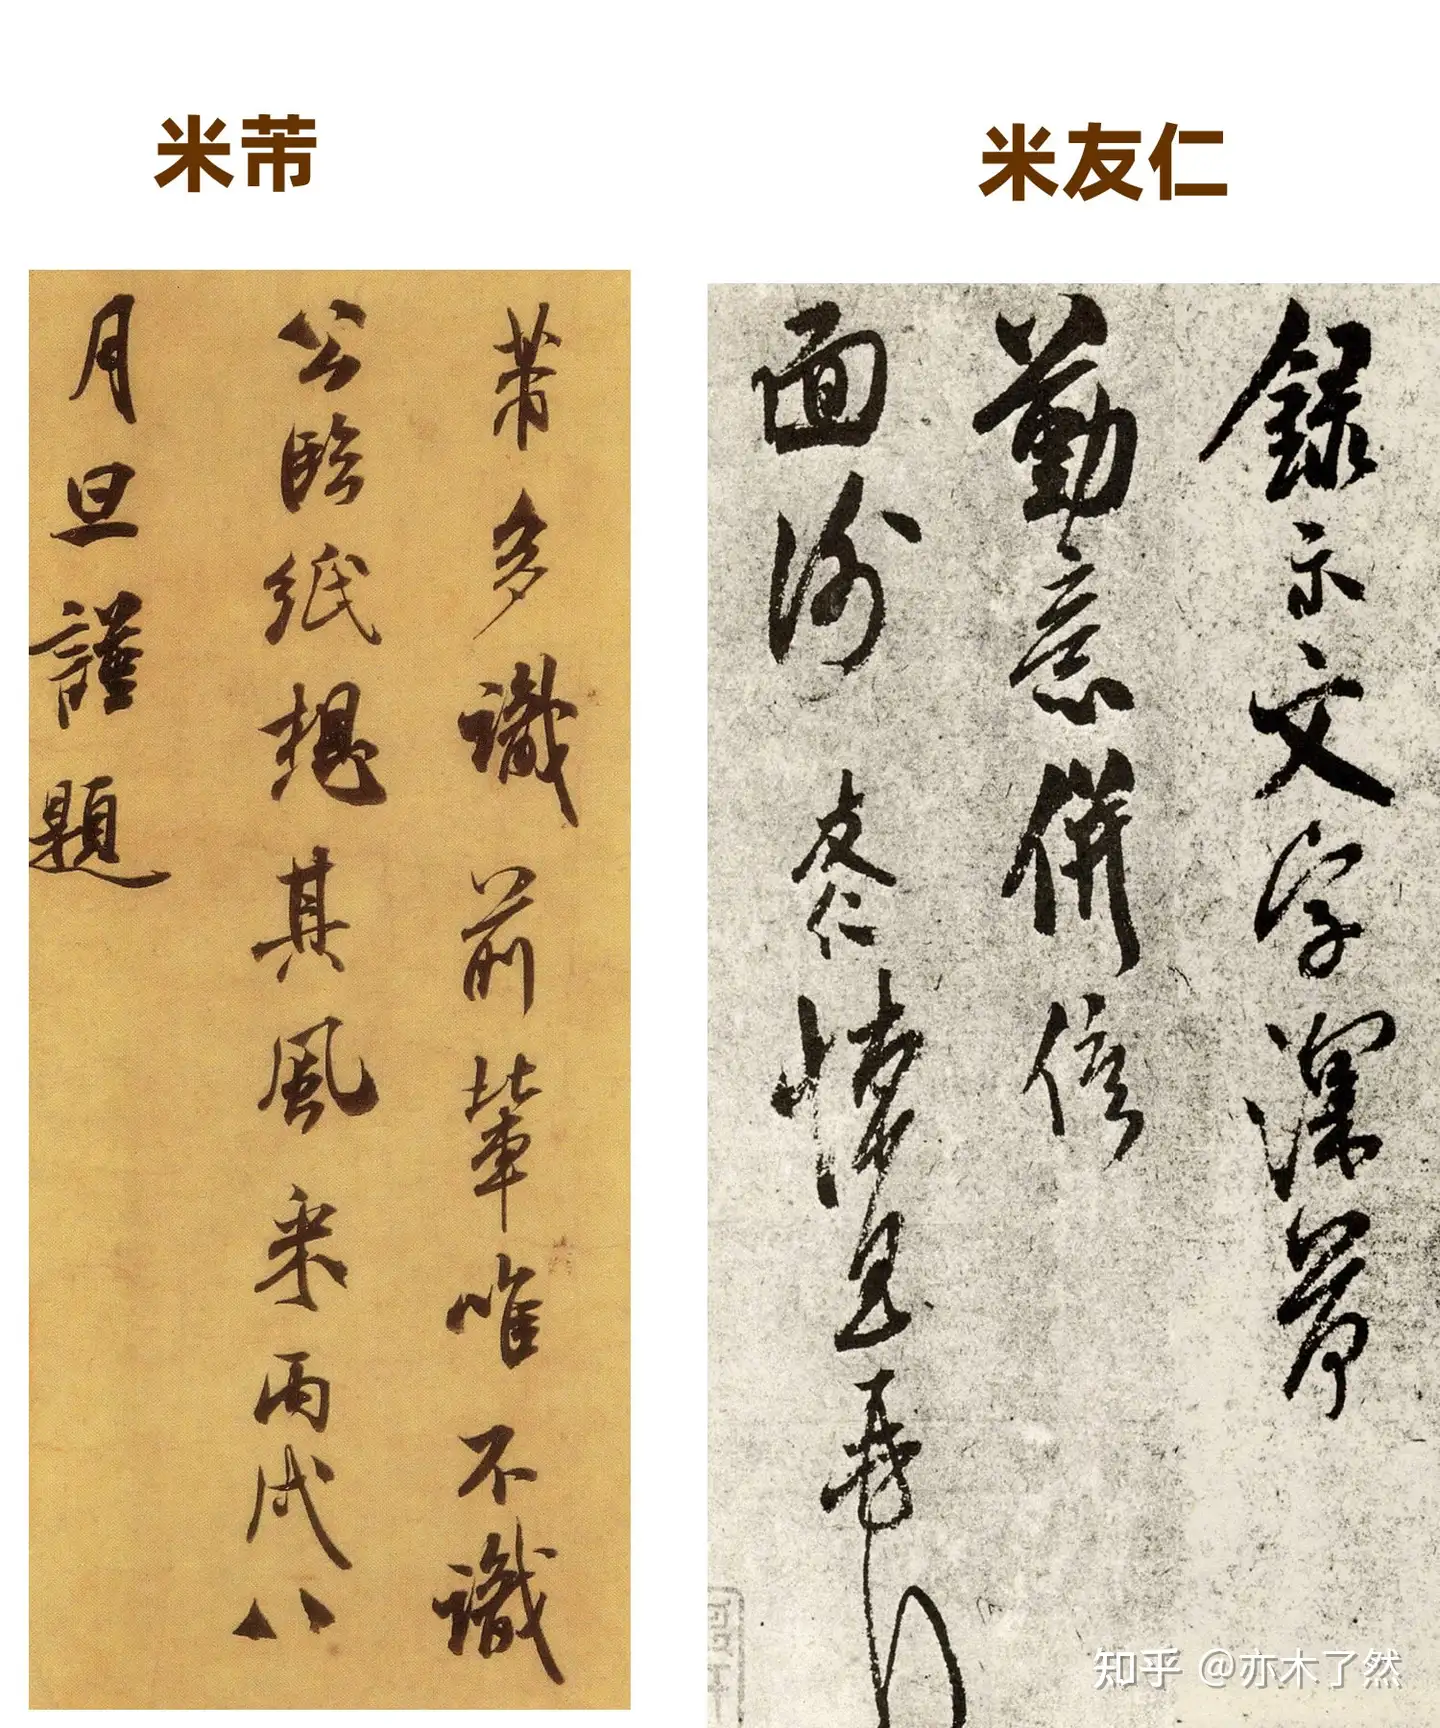 米芾
米友仁
芾多識前輩唯不識
公臨紙想其風采丙戌八
月旦謹題
錄示文字深荷
勤意併俟
面謝 友仁
知乎 @亦木了然